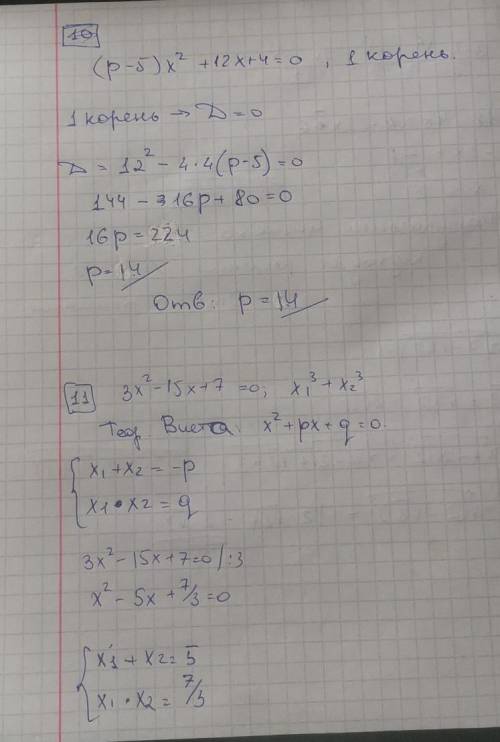 10
(p-5)x² + 12x + 4 = 0 , 1 корень.
1 корень → D = 0
D = 12² - 4·4(p-5) = 0
144 - 16p + 80 = 0
16p = 224
p = 14
Отв: p = 14
11 3x² - 15x + 7 = 0; x₁³ + x₂³
Теор Виета: x² + px + q = 0.
x₁ + x₂ = -p
x₁ · x₂ = q
3x² - 15x + 7 = 0 | :3
x² - 5x + 7/3 = 0
x₁ + x₂ = 5
x₁ · x₂ = 7/3